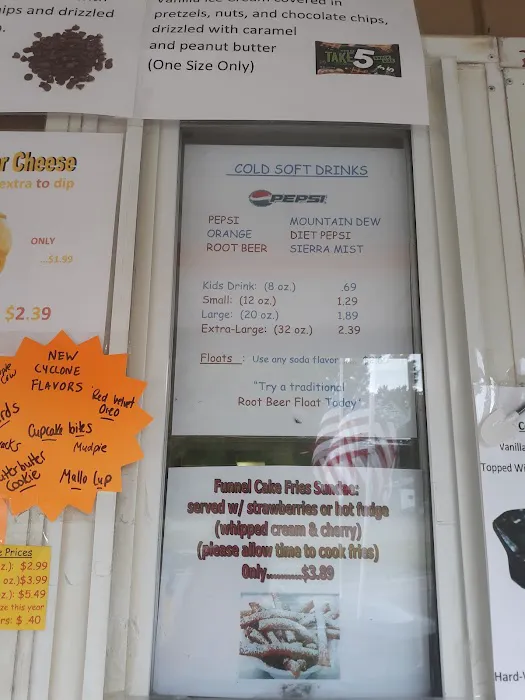 ips and drizzled
Vanilla Ice Cream covered in
pretzels, nuts, and chocolate chips,
drizzled with caramel
and peanut butter
(One Size Only)
TAKE 5
r Cheese
extra to dip
ONLY
...$1.99
$2.39
NEW
CYCLONE
FLAVORS
Red Velvet
Oreo
Cupcake bites
Mudpie
Cookie
Mallo Cup
e Prices
z.): $2.99
oz.)$3.99
z.): $5.49
ze this year
rs: $ .40
COLD SOFT DRINKS
PEPSI
PEPSI MOUNTAIN DEW
ORANGE DIET PEPSI
ROOT BEER SIERRA MIST
Kids Drink: (8 oz.) .69
Small: (12 oz.) 1.29
Large: (20 oz.) 1.89
Extra-Large: (32 oz.) 2.39
Floats : Use any soda flavor
"Try a traditional
Root Beer Float Today"
Funnel Cake Fries Sundae:
served w/ strawberries or hot fudge
(whipped cream & cherry)
(please allow time to cook fries)
Only..........$3.89
Vanilla
Topped Wi
Hard-